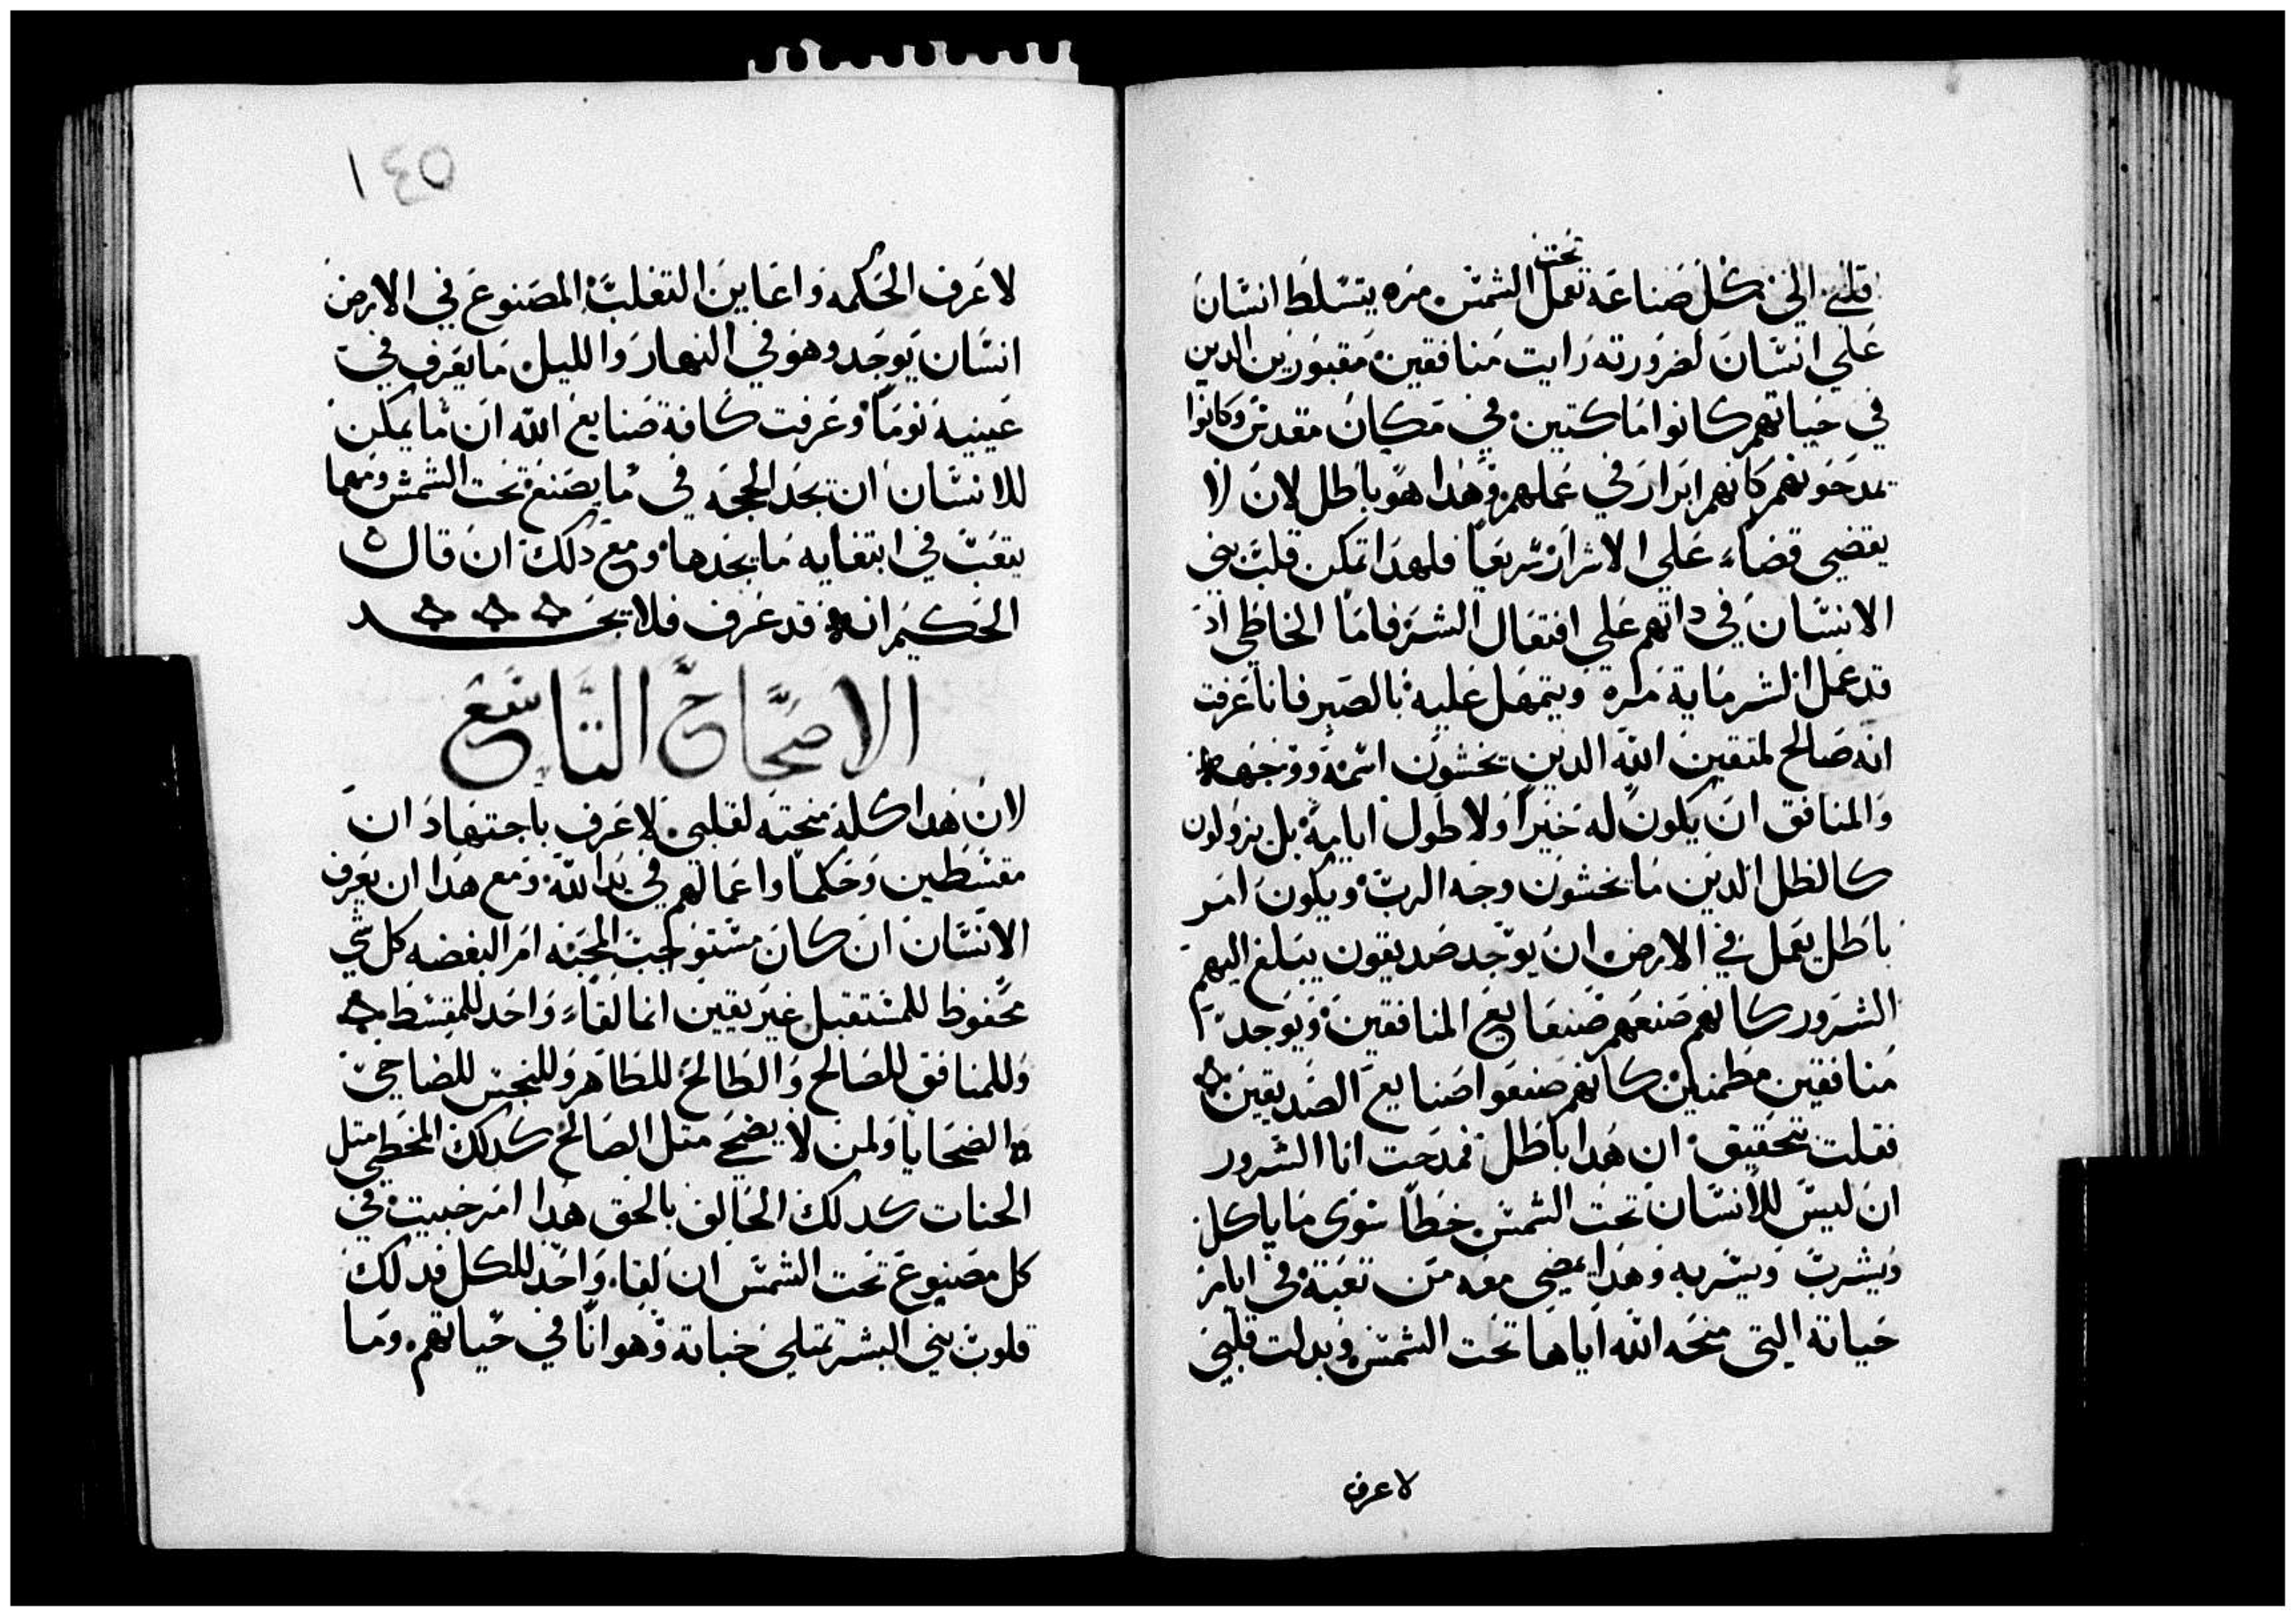 قلبي الي كل صناعة تعمل تحت الشمس مره يتسلط انسان
علي انسان لضرورته رايت منافقين مقبورين الدين
في حياتهم كانوا ماكتين في مكان مقدس وكانوا
يمدحونهم كانهم ابرار في عملهم وهدا هو باطل لان لا
يقضي قضاء علي الاشرار سريعاً فلهدا تمكن قلب بني
الانسان في داتهم علي افتعال الشر فاما الخاطي اد
قد عمل الشر ماية مرة ويتمهل عليه بالصبر فانا عرفت
انه صالح لمتقين الله الدين يخشون اسمه ووجهه
والمنافق ان يكون له خيراً ولا طول ايامه بل يزولون
كالظل الدين ما يخشون وجه الرب ويكون امر
باطل يعمل في الارض ان يوجد صديقون يبلغ اليهم
الشرور كانهم صنعهم صنايع المنافقين ويوجد
منافقين مطمنين كانهم صنعوا صنايع الصديقين
فقلت بتحقيق ان هدا باطل فمدحت انا السرور
ان ليس للانسان تحت الشمس خطا سوى ما ياكل
ويشرب ويسر به وهدا يمضي معه من تعبه في ايام
حياته التي منحه الله اياها تحت الشمس وبدلت قلبي
لاعرف
١٤٥
لاعرف الحكمه واعاين التغلب المصنوع في الارض
انسان يوجد وهو في النهار والليل ما يعرف في
عينيه نوماً وعرفت كافة صنايع الله ان ما يمكن
للانسان ان يجد الحجه في ما يصنع تحت الشمس ومهما
يتعب في ابتغايه ما يجدها ومع دلك ان قال
الحكيم انه قد عرف فلا يجد
الاصحاح التاسع
لان هدا كله منحته لقلبي لاعرف باجتهاد ان
مقسطين وحكما واعمالهم في يد الله ومع هدا ان يعرف
الانسان ان كان مستوجب المحبه ام البغضه كل شي
محفوظ للمستقبل غير يقين انما لقاء واحد للمقسط
وللمنافق للصالح والطالح للطاهر وللنجس للضاحي
الضحايا ولمن لا يضحي متل الصالح كدلك المخطي متل
الحنات كدلك الحالف بالحق هدا امر خبيت في
كل مصنوع تحت الشمس ان لقاء واحد للكل فدلك
قلوب بني البشر تمتلي خباته وهوانا في حياتهم وما